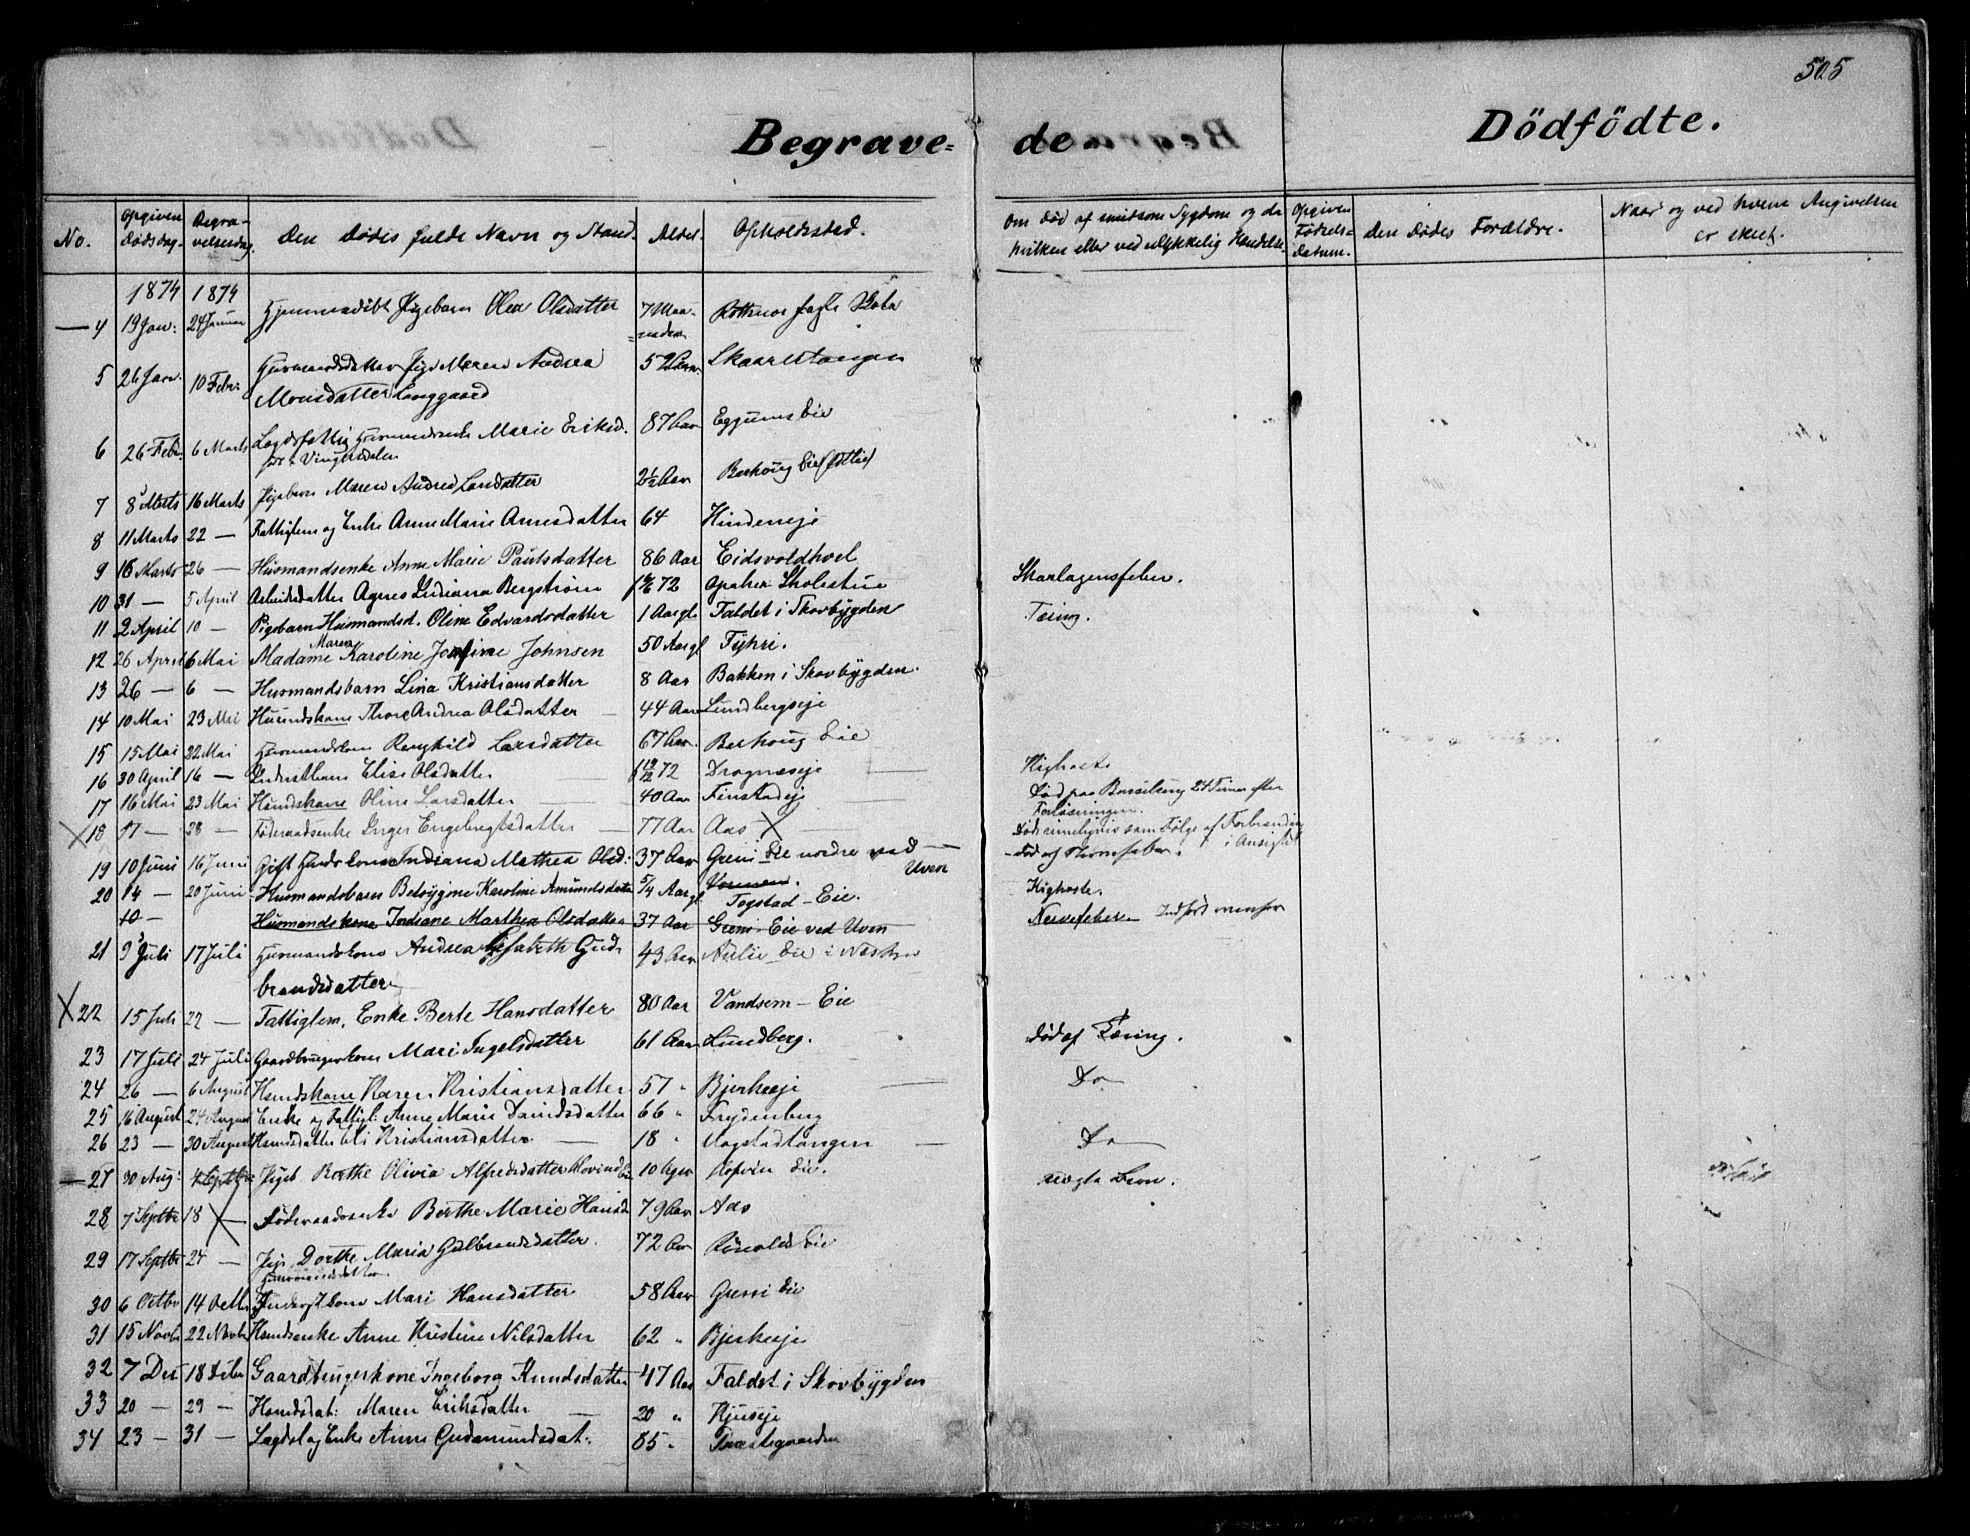 505
Begrave= de Dödfödte.
No. Opgiven Dødsdag. Begravelsesdag. Den Dødes fulde Navn og Stand. Alder. Opholdssted. Om død af smitsom Sygdom og da hvilken eller ved ulykkelig Hændelse. Opgiven Fødselsdatum. Den Dødes Forældre. Naar og ved hvem Angivelsen er skeet.
1874 1874
4 19 Jan: 24 Januar Hjemmedøbt Pigebarn Olea Olsdatter 7 Maaneder
5 26 Jan. 10 Febr: Pige Maren Andrea Monsdatter Langgaard Skaarestangen
6 26 Febr. 6 Marts Lægdsfattig Marie Eriksd. 87 Aar Eggums Eie
7 8 Marts 16 Marts Pigebarn Maren Andrea Larsdatter 2½ Aar Berhoug Eie
8 11 Marts 22 — Fattiglem og Enke Anne Marie Arnesdatter 64
9 16 Marts 26 — Husmandsenke Anne Marie Paulsdatter 86 Aar Eidsvoldhoel
10 31 — 5 April Arbeidsdatter Agnes Lydiana Bergstrøm 72 Skolestue Skarlagensfeber.
11 2 April 10 — Pigebarn Husmandsd. Oline Edvardsdatter 1 Aar gl Faldet i Skovbygden Tæring.
12 26 April 6 Mai Madame Maren Karoline Josefine Johnsen 50 Aar gl Fyhri.
13 26 — 6 — Husmandsbarn Lina Kristiansdatter 8 Aar Bakken i Skovbygden.
14 10 Mai 23 Mai Thore Andrea Olsdatter — 44 Aar Lundbergseje
15 15 Mai 22 Mai Husmandskone Ragnhild Larsdatter 67 Aar Berhoug Eie
16 30 April 16 — Elise Olsdatter — 72 Dragnæseje — Kighoste
17 16 Mai 23 Mai Hsmdskone Oline Larsdatter — 40 Aar Finstadej Død paa Barselseng 24 Timer efter Forløsningen.
X 18 17 — 28 — Føderaadsenke Inger Engebregtsdatter — 77 Aar Aas X Død rimeligvis som Følge af Forbrænding i Ansigtet
19 10 Juni 16 Juni Gift Indiana Mathea Olsd: 37 Aar Greni Eie nordre ved Uven — Død af Nervefeber.
20 14 — 20 Juni Husmandsbarn Karoline Amundsdatter 5/4 Aar gl Vormen. Togstad - Eie. Kighoste.
10 — Husmandskone Indiane Marthea Olsdatter 37 Aar Greni - Eie ved Uven Nervefeber — Indført ovenfor
21 9 Juli 17 Juli Husmandskone Andrea Elisabeth Gudbrandsdatter 43 Aar Eie i Næstre
X 22 15 Juli 22 — Fattiglem, Enke Berte Hansdatter 80 Aar Vandsem - Eie
23 17 Juli 24 Juli Gaardbrugerkone Mari Ingelsdatter 61 Aar Lundberg. Død af Tæring.
24 26 — 6 August Hsmdskone Karen Kristiansdatter 57 " Bjerkeeje — Do
25 16 August 24 August Enke og Fattigl: Anne Maria Davidsdatter 66 " Frydenberg
26 23 — 30 August Hsmdsdatter Eli Kristiansdatter — 18 " — Do
— 27 30 Aug: 4 Septbr Pigeb Berthe Olivia Alfredsdatter Hovind Eie Hofvin Eie. uægte Barn.
28 7 Septbr 18 X — Føderaadsenke Berthe Marie Hansd 79 Aar Aas
29 17 Septbr 24 — Pige Dorthe Maria Gulbrandsdatter. 72 Aar
30 6 Octbr 14 Octbr Mari Hansdatter 58 Aar Greni Eie
31 15 Novbr 22 Novbr Hsmdsenke Anne Kristine Nilsdatter 62 " Bjerkeeje
32 7 Des 18 Desbr Gaardbrugerkone Ingeborg Knudsdatter 47 Aar Faldet i Skovbygden
33 20 — 29 — Hsmdsdat: Maren Eriksdatter — 20 " Hjuseje
34 23 — 31 — Lægdsl og Enke Anne Gudmundsdat. 85 " Præstegaarden